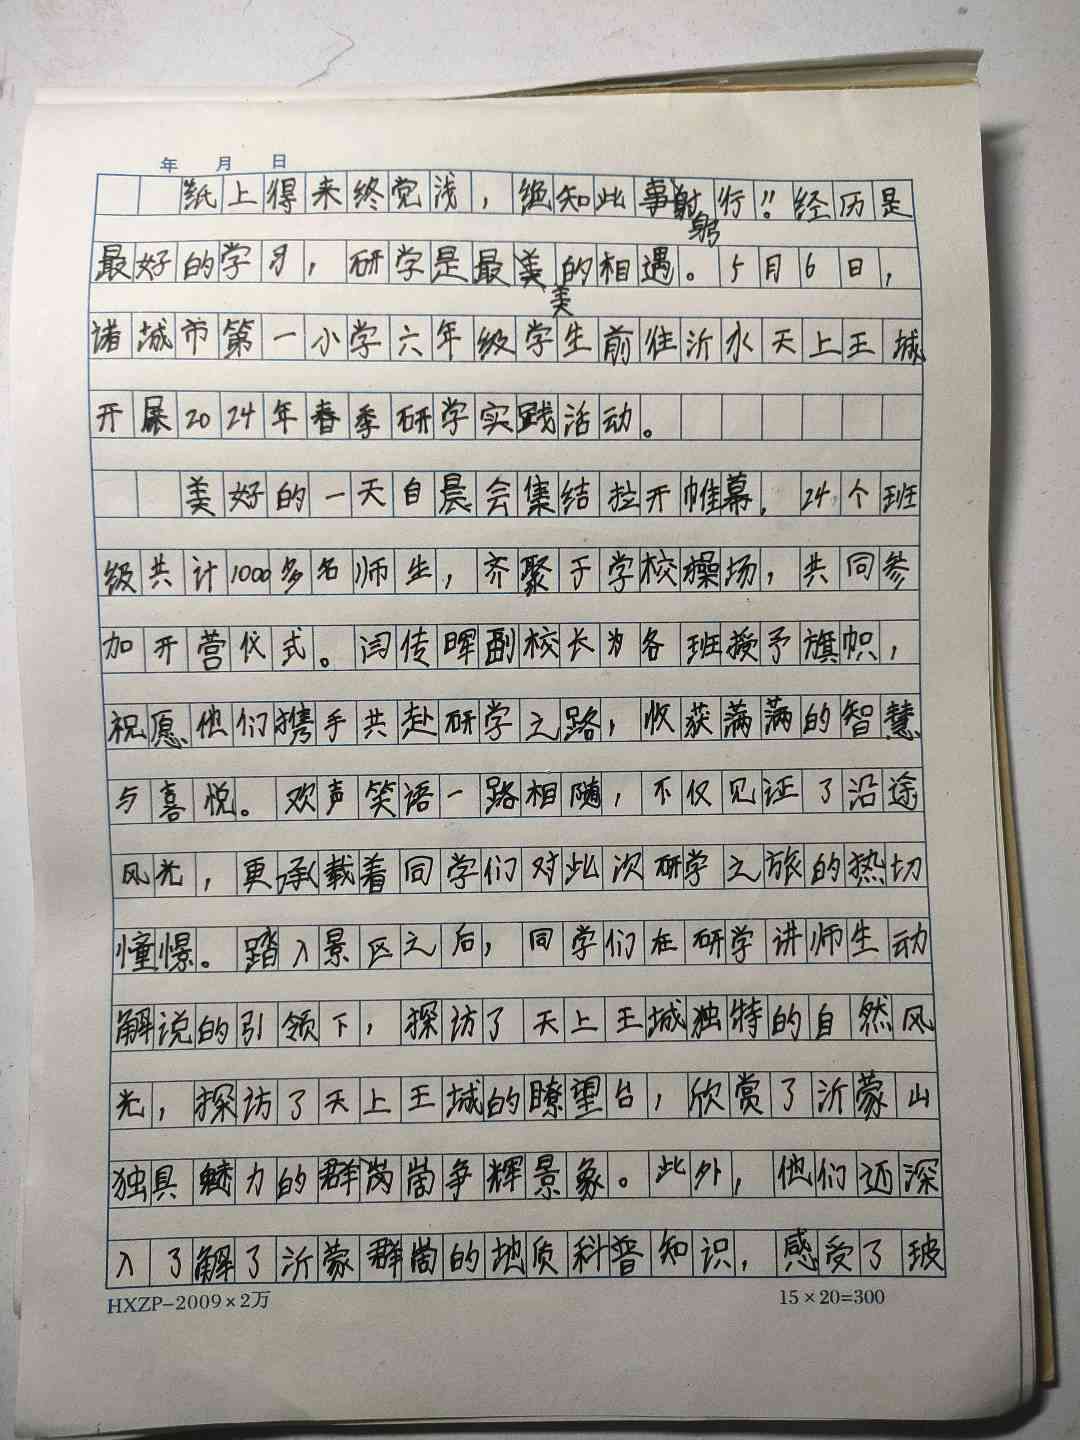 年 月 日
纸上得来终觉浅，绝知此事躬行!!经历是
最好的学习，研学是最美的相遇。5月6日，
诸城市第一小学六年级学生前往沂水天上王城
开展2024年春季研学实践活动。
美好的一天自晨会集结拉开帷幕，24个班
级共计1000多名师生，齐聚于学校操场，共同参
加开营仪式。闫传晖副校长为各班授予旗帜，
祝愿他们携手共赴研学之路，收获满满的智慧
与喜悦。欢声笑语一路相随，不仅见证了沿途
风光，更承载着同学们对此次研学之旅的热切
憧憬。踏入景区之后，同学们在研学讲师生动
解说的引领下，探访了天上王城独特的自然风
光，探访了天上王城的瞭望台，欣赏了沂蒙山
独具魅力的群崮争辉景象。此外，他们还深
入了解了沂蒙群崮的地质科普知识，感受了玻
HXZP-2009×2万
15×20=300